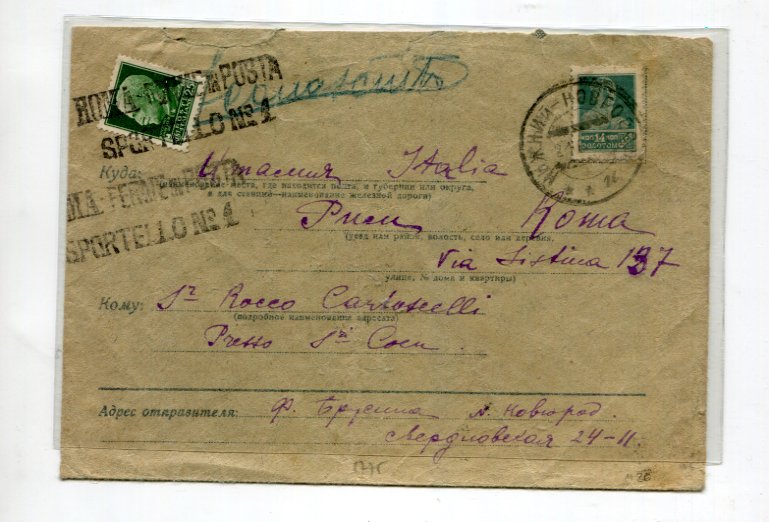 ROMA - FERME IN POSTA
SPORTELLO Nº 1
ROMA - FERME IN POSTA
SPORTELLO Nº 1
НИЖНИЙ-НОВГОРОД
14
ЗОЛОТОМ
Куда: Италия Italia
(наименование места, где находится почта, и губернии или округа,
а для станции—наименование железной дороги)
Рим Roma
(уезд или район, волость, село или деревня,
Via Sistina 137
улица, № дома и квартиры)
Кому: Sr Rocco
(подробное наименование адресата)
Presso Sri
Адрес отправителя: Ф. Брусина Н. Новгород.
Свердловская 24-11.